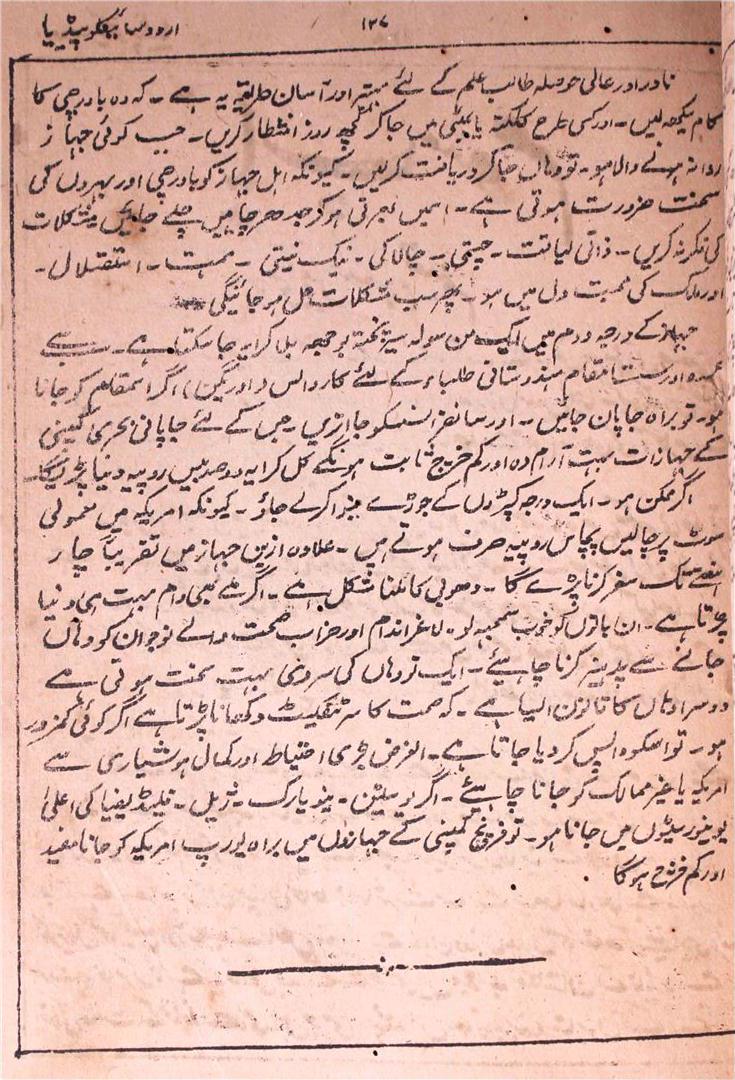 اردو سائیکلوپیڈیا
۱۳۷
نادر اور عالی حوصلہ طالب علم کے لئے بہتر اور آسان طریقہ یہ ہے ۔ کہ وہ باورچی کا
کام سیکھ لیں ۔ اور کسی طرح کلکتہ یا بمبئی میں جا کر کچھ روز انتظار کریں ۔ جب کوئی جہاز
روانہ ہونے والا ہو ۔ تو وہاں جا کر دریافت کریں ۔ کیونکہ اہل جہاز کو باورچی اور بہروں کی
سخت ضرورت ہوتی ہے ۔ اسمیں بھرتی ہو کر جدھر چاہیں چلے جائیں مشکلات
کی فکر نہ کریں ۔ ذاتی لیاقت ۔ چستی ۔ چالاکی ۔ نیک نیتی ۔ ہمت ۔ استقلال ۔
اور ملک کی محبت دل میں ہو ۔ پھر سب مشکلات حل ہو جائینگی
جہاز کے درجہ دوم میں ایک من سولہ سیر پختہ بوجھ بلا کرایہ جا سکتا ہے ۔ سب سے
عمدہ اور سستا مقام ہندوستانی طلباء کے لئے کاروالس (اوریگن) اگر اس مقام کو جانا
ہو ۔ تو براہ جاپان جائیں ۔ اور سانفرانسسکو جا اتریں ۔ جس کے لئے جاپانی بحری کمپنی
کے جہازات بہت آرام دہ اور کم خرچ ثابت ہونگے کل کرایہ دو صد بیس روپیہ دینا پڑیگا
اگر ممکن ہو ۔ ایک درجہ کپڑوں کے جوڑے بنوا کر لے جاؤ ۔ کیونکہ امریکہ میں معمولی
سوٹ پر چالیس پچاس روپیہ صرف ہوتے ہیں ۔ علاوہ ازیں جہاز میں تقریباً چار
ہفتے تک سفر کرنا پڑے گا ۔ دھوبی کا ملنا مشکل ہے ۔ اگر ملے بھی دام بہت ہی دینا
پڑتا ہے ۔ ان باتوں کو خوب سمجھ لو ۔ لاغر اندام اور خراب صحت والے نوجوان کو وہاں
جانے سے پرہیز کرنا چاہیئے ۔ ایک تو وہاں کی سردی بہت سخت ہوتی ہے
دوسرا وہاں کا قانون ایسا ہے ۔ کہ صحت کا سرٹیفکیٹ دکھانا پڑتا ہے اگر کوئی کمزور
ہو ۔ تو اسکو واپس کر دیا جاتا ہے ۔ الغرض بڑی احتیاط اور کمال ہوشیاری سے
امریکہ یا غیر ممالک کو جانا چاہیئے ۔ اگر بوسٹن ۔ نیویارک ۔ ییل ۔ فلیڈیفیا کی اعلیٰ
یونیورسیٹیوں میں جانا ہو ۔ تو فرنچ کمپنی کے جہازوں میں براہ یورپ امریکہ کو جانا مفید
اور کم خرچ ہو گا